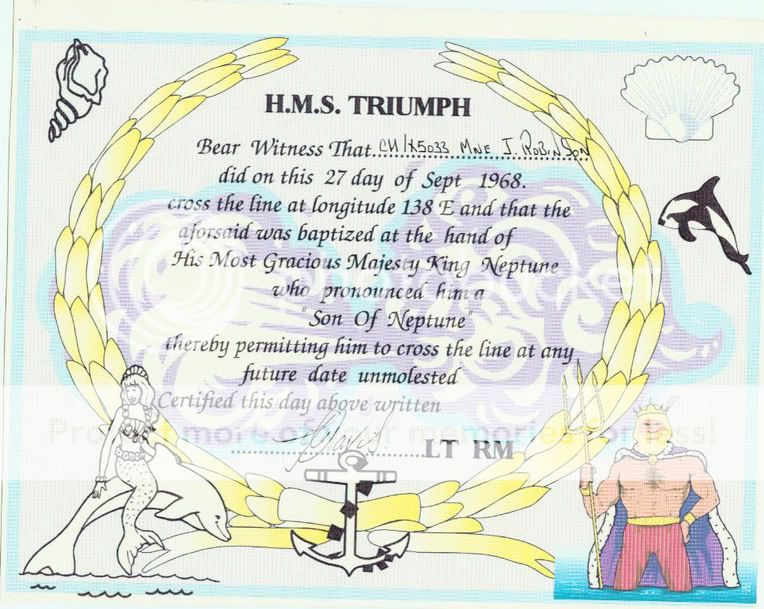 H.M.S. TRIUMPH
Bear Witness That CH/X5033 MNE J. ROBINSON
did on this 27 day of Sept 1968.
cross the line at longitude 138 E and that the
aforsaid was baptized at the hand of
His Most Gracious Majesty King Neptune
who pronounced him a
"Son Of Neptune"
thereby permitting him to cross the line at any
future date unmolested
Certified this day above written
Protect more of your memories for less!
LT RM